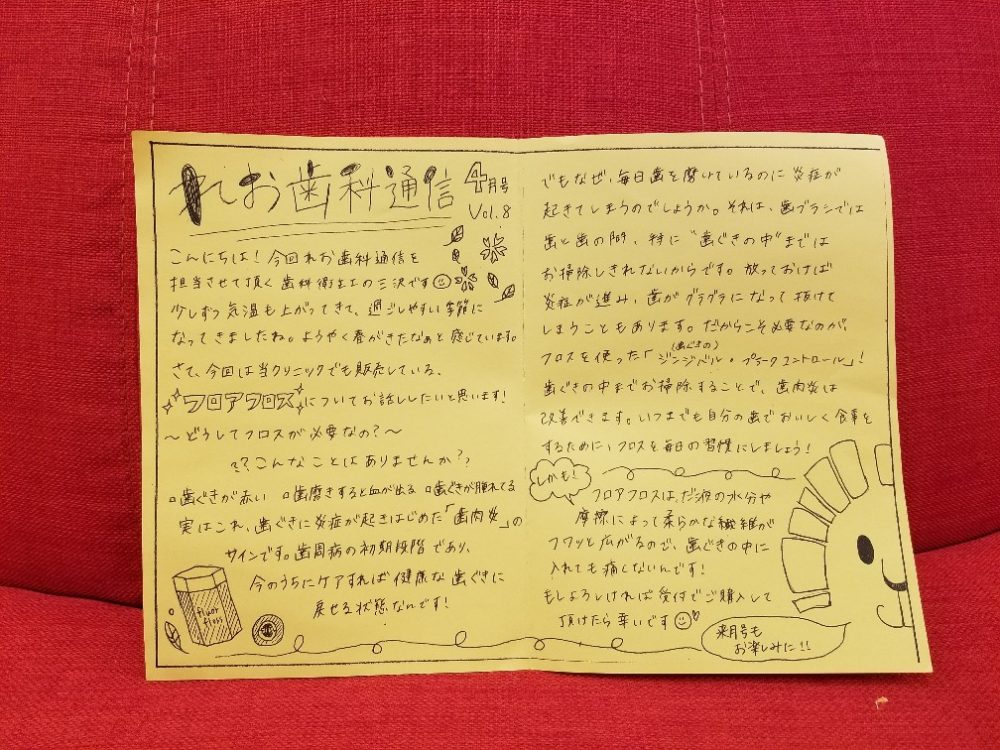 れお歯科通信
4月号
Vol.8
こんにちは！今回れお歯科通信を
担当させて頂く歯科衛生士の三沢です
少しずつ気温も上がってきて、過ごしやすい季節に
なってきましたね。ようやく春がきたなぁと感じています。
さて、今回は当クリニックでも販売している、
フロアフロスについてお話ししたいと思います！
～どうしてフロスが必要なの？～
??こんなことはありませんか??
▫歯ぐきが赤い ▫歯磨きすると血が出る ▫歯ぐきが腫れてる
実はこれ、歯ぐきに炎症が起きはじめた「歯肉炎」の
サインです。歯周病の初期段階であり、
今のうちにケアすれば健康な歯ぐきに
戻せる状態なんです！
fluor
floss
でもなぜ、毎日歯を磨いているのに炎症が
起きてしまうのでしょうか。それは、歯ブラシでは
歯と歯の間、特に"歯ぐきの中"までは
お掃除しきれないからです。放っておけば
炎症が進み、歯がグラグラになって抜けて
しまうこともあります。だからこそ必要なのが、
(歯ぐきの)
フロスを使った「ジンジベル・プラークコントロール」！
歯ぐきの中までお掃除することで、歯肉炎は
改善できます。いつまでも自分の歯でおいしく食事を
するために、フロスを毎日の習慣にしましょう！
しかも！
フロアフロスは、だ液の水分や
摩擦によって柔らかな繊維が
フワッと広がるので、歯ぐきの中に
入れても痛くないんです！
もしよろしければ受付でご購入して
頂けたら幸いです
来月号も
お楽しみに!!